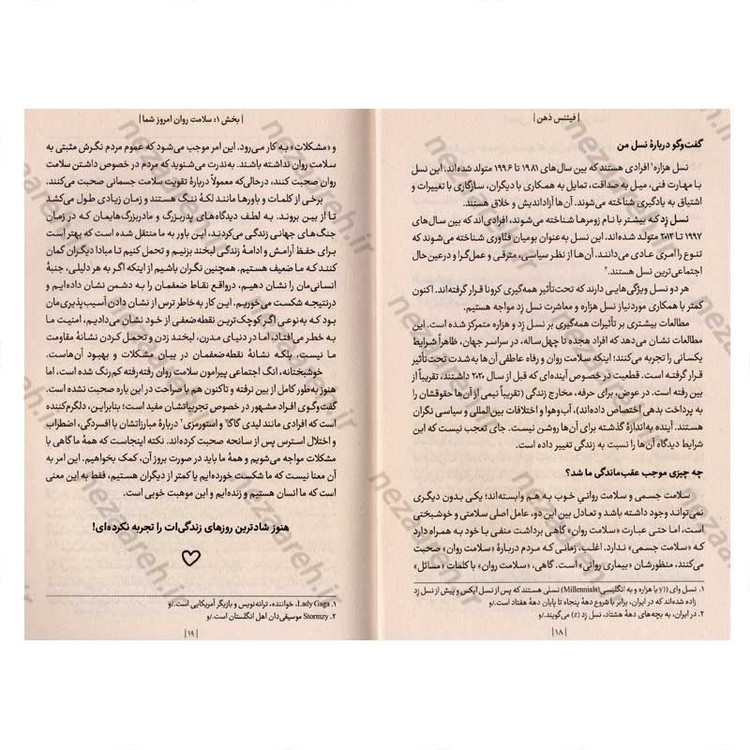 | فیتنس ذهن |
گفت‌وگو دربارهٔ نسل من
نسل هزاره¹ افرادی هستند که بین سال‌های ۱۹۸۱ تا ۱۹۹۶ متولد شده‌اند. این نسل
با مهارت فنی، میل به صداقت، تمایل به همکاری با دیگران، سازگاری با تغییرات و
اشتیاق به یادگیری شناخته می‌شوند. آن‌ها آزاداندیش و خلاق هستند.
نسل زِد که بیشتر با نام زومرها شناخته می‌شوند، افرادی‌اند که بین سال‌های
۱۹۹۷ تا ۲۰۱۲ متولد شده‌اند. این نسل به‌عنوان بومیان فنّاوری شناخته می‌شوند که
تنوع را امری عادی می‌دانند. آن‌ها از نظر سیاسی، مترقی و عمل‌گرا و درعین‌حال
اجتماعی‌ترین نسل هستند.²
هر دو نسل ویژگی‌هایی دارند که تحت‌تأثیر همه‌گیری کرونا قرار گرفته‌اند. اکنون
کمتر با همکاری موردنیاز نسل هزاره و معاشرت نسل زِد مواجه هستیم.
مطالعات بیشتری بر تأثیرات همه‌گیری بر نسل زِد و هزاره متمرکز شده است. این
مطالعات نشان می‌دهد که افراد هجده تا چهل‌ساله، در سراسر جهان، ظاهراً شرایط
یکسانی را تجربه می‌کنند؛ اینکه سلامت روان و رفاه عاطفی آن‌ها به‌شدت تحت تأثیر
قرار گرفته است. قطعیت در خصوص آینده‌ای که قبل از سال ۲۰۲۰ داشتند، تقریباً از
بین رفته است. در عوض، برای حرفه، مخارج زندگی (تقریباً نیمی از آن‌ها حقوقشان را
به پرداخت بدهی اختصاص داده‌اند)، آب‌وهوا و اختلافات بین‌المللی و سیاسی نگران
هستند. آینده به‌اندازهٔ گذشته برای آن‌ها روشن نیست. جای تعجب نیست که این
شرایط دیدگاه آن‌ها را نسبت به زندگی تغییر داده است.
چه چیزی موجب عقب‌ماندگی ما شد؟
سلامت جسمی و سلامت روانی خوب به هم وابسته‌اند؛ یکی بدون دیگری
نمی‌تواند وجود داشته باشد و تعادل بین این دو، عامل اصلی سلامتی و خوشبختی
است، اما حتی عبارت «سلامت روان» گاهی برداشت منفی با خود به همراه دارد
که «سلامت جسمی» ندارد. اغلب، زمانی که مردم دربارهٔ «سلامت روان» صحبت
می‌کنند، منظورشان «بیماری روانی» است. گاهی، «سلامت روان» با کلمات «مسائل»
۱. نسل وای (y) یا هزاره و به انگلیسی (Millennials) نسلی هستند که پس از نسل ایکس و پیش از نسل زد
زاده شده‌اند که در ایران، برابر با شروع دههٔ پنجاه تا پایان دههٔ هفتاد است./و
۲. در ایران، به بچه‌های دههٔ هشتاد، نسل زِد (z) می‌گویند./و
| ۱۸ |
| بخش ۱: سلامت روان امروز شما |
و «مشکلات» به کار می‌رود. این امر موجب می‌شود که عموم مردم نگرش مثبتی به
سلامت روان نداشته باشند. به‌ندرت می‌شنوید که مردم در خصوص داشتن سلامت
روان صحبت کنند، درحالی‌که معمولاً دربارهٔ تقویت سلامت جسمانی صحبت می‌کنند.
برخی از کلمات و باورها مانند لکهٔ ننگ هستند و زمان زیادی طول می‌کشد
تا از بین بروند. به لطف دیدگاه‌های پدربزرگ و مادربزرگ‌هایمان که در زمان
جنگ‌های جهانی زندگی می‌کردند، این باور به ما منتقل شده است که بهتر است
برای حفظ آرامش و ادامهٔ زندگی لبخند بزنیم و تحمل کنیم تا مبادا دیگران گمان
کنند که ما ضعیف هستیم. همچنین نگران باشیم از اینکه اگر به هر دلیلی، جنبهٔ
انسانی‌مان را نشان دهیم، درواقع نقاط ضعفمان را به دشمن نشان داده‌ایم و
درنتیجه شکست می‌خوریم. این کار به خاطر ترس از نشان دادن آسیب‌پذیری‌مان
بود که به‌نوعی اگر کوچک‌ترین نقطه‌ضعفی از خود نشان می‌دادیم، امنیت ما
به خطر می‌افتاد، اما در دنیای مدرن، لبخند زدن و تحمل کردن نشانهٔ مقاومت
ما نیست، بلکه نشانهٔ نقطه‌ضعفمان در بیان مشکلات و بهبود آن‌هاست.
خوشبختانه، انگ اجتماعی پیرامون سلامت روان رفته‌رفته کم‌رنگ شده است، اما
هنوز به‌طور کامل از بین نرفته و تاکنون هم با صراحت در این باره صحبت نشده است.
گفت‌وگوی افراد مشهور در خصوص تجربیاتشان مفید است؛ بنابراین، دلگرم‌کننده
است که افرادی مانند لیدی گاگا¹ و استورمزی² دربارهٔ مبارزاتشان با افسردگی، اضطراب
و اختلال استرس پس از سانحه صحبت کرده‌اند. نکته اینجاست که همهٔ ما گاهی با
مشکلات مواجه می‌شویم و همهٔ ما باید در صورت بروز آن، کمک بخواهیم. این امر به
آن معنا نیست که ما شکست خورده‌ایم یا کمتر از دیگران هستیم، فقط به این معنی
است که ما انسان هستیم و زنده‌ایم و این موهبت خوبی است.
هنوز شادترین روزهای زندگی‌ات را تجربه نکرده‌ای!
۱. Lady Gaga، خواننده، ترانه‌نویس و بازیگر آمریکایی است./و
۲. Stormzy موسیقی‌دان اهل انگلستان است./و
| ۱۹ |
nezareh.ir